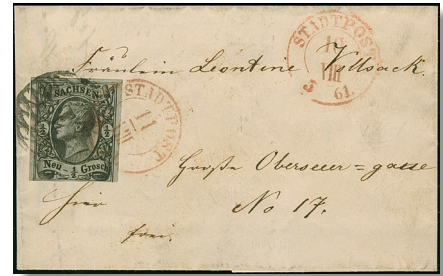 STADTPOST
VIII
61.
Fräulein Leontine
SACHSEN
½ ½
Neu - ½ - Grosch
STADTPOST
Große Oberseer=gasse
hier
No 17.
frei.